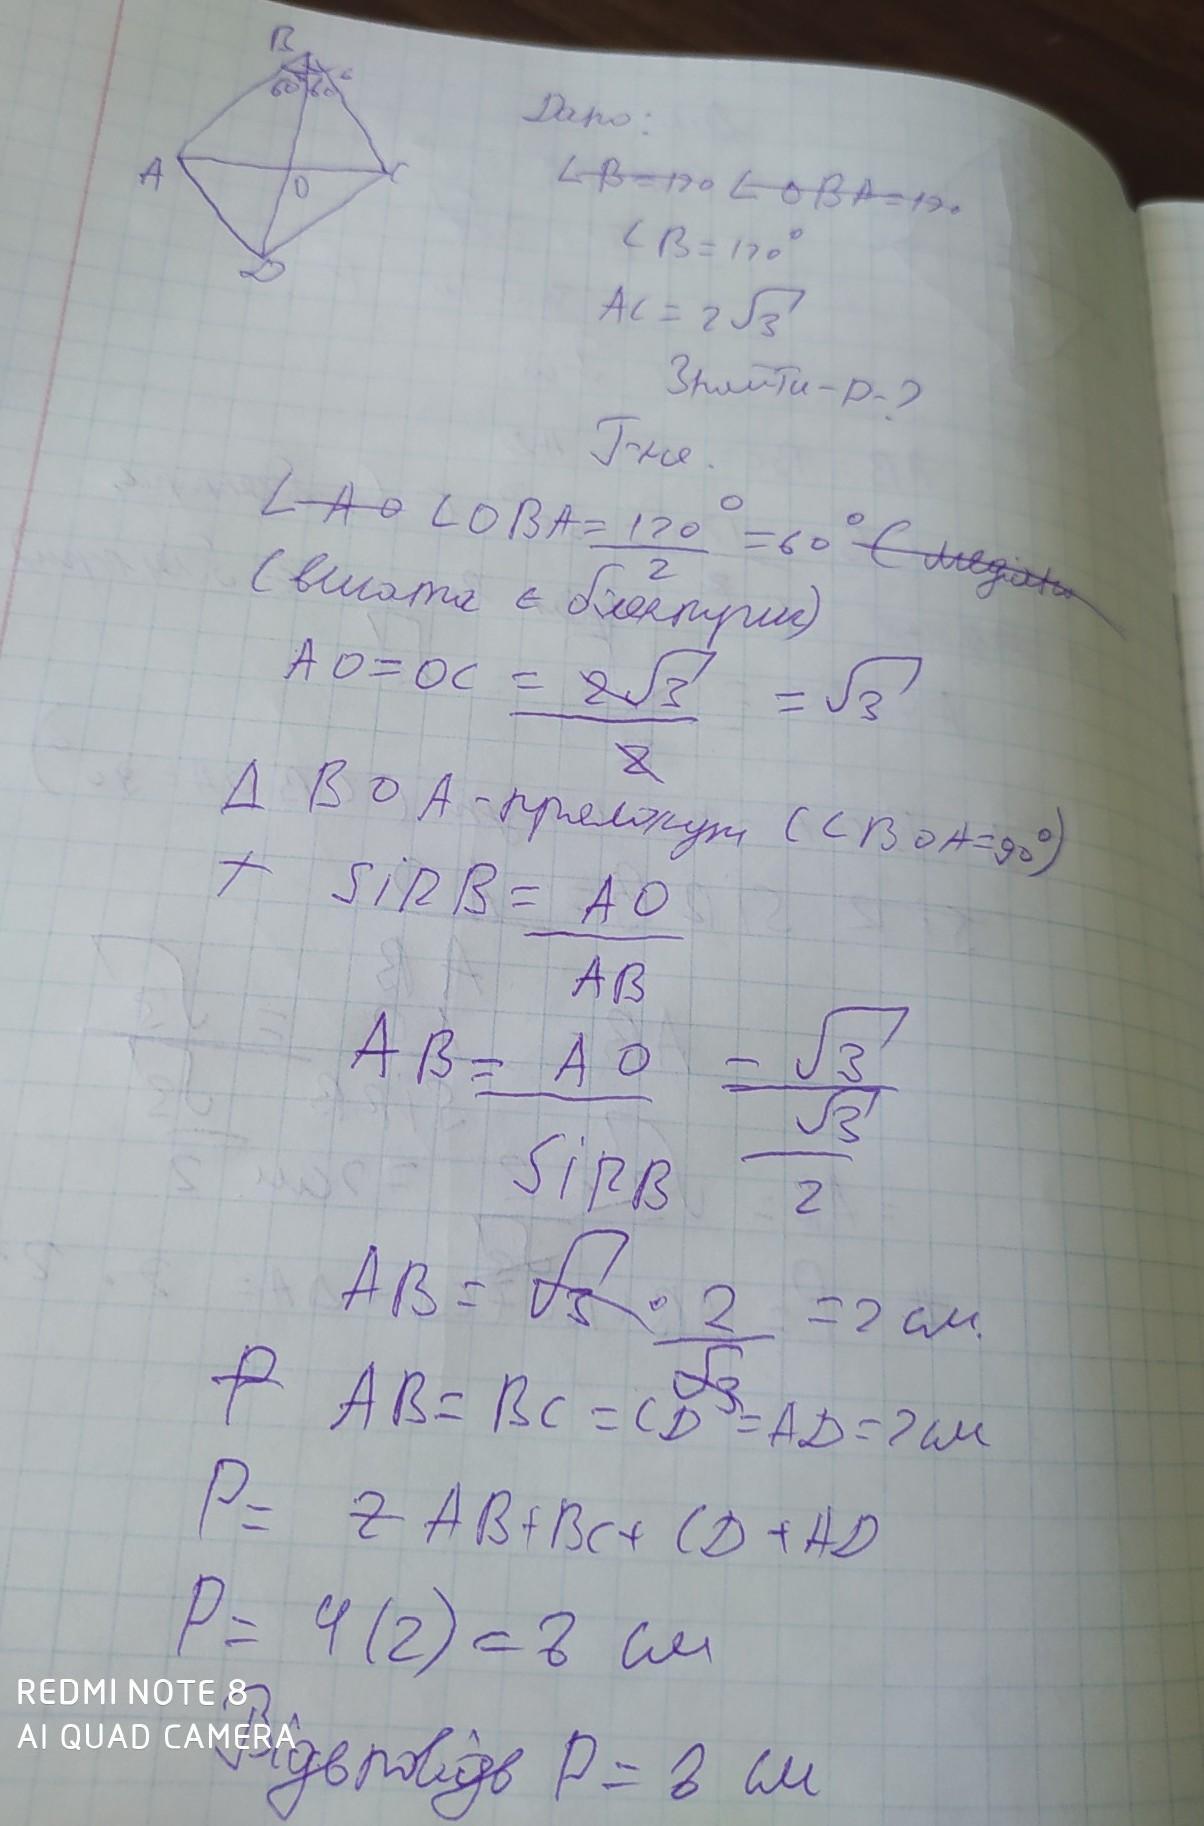 B
60 60
A
O
C
D
Дано:
∠B=120 ∠OBA=120
∠B=120°
AC=2√3
Знайти-P-?
∠AO ∠OBA=120°/2=60° (медіан
(висота є бісектриси)
AO=OC=2√3/2=√3
Δ BOA-прямокут (∠BOA=90°)
sinB=AO/AB
AB=AO/sinB=√3/(√3/2)
AB=√3·2/√3=2 см.
P AB=BC=CD=AD=2см
P= 2 AB+BC+CD+AD
P=4(2)=8 см
REDMI NOTE 8
AI QUAD CAMERA
Відьповідь P=8 см